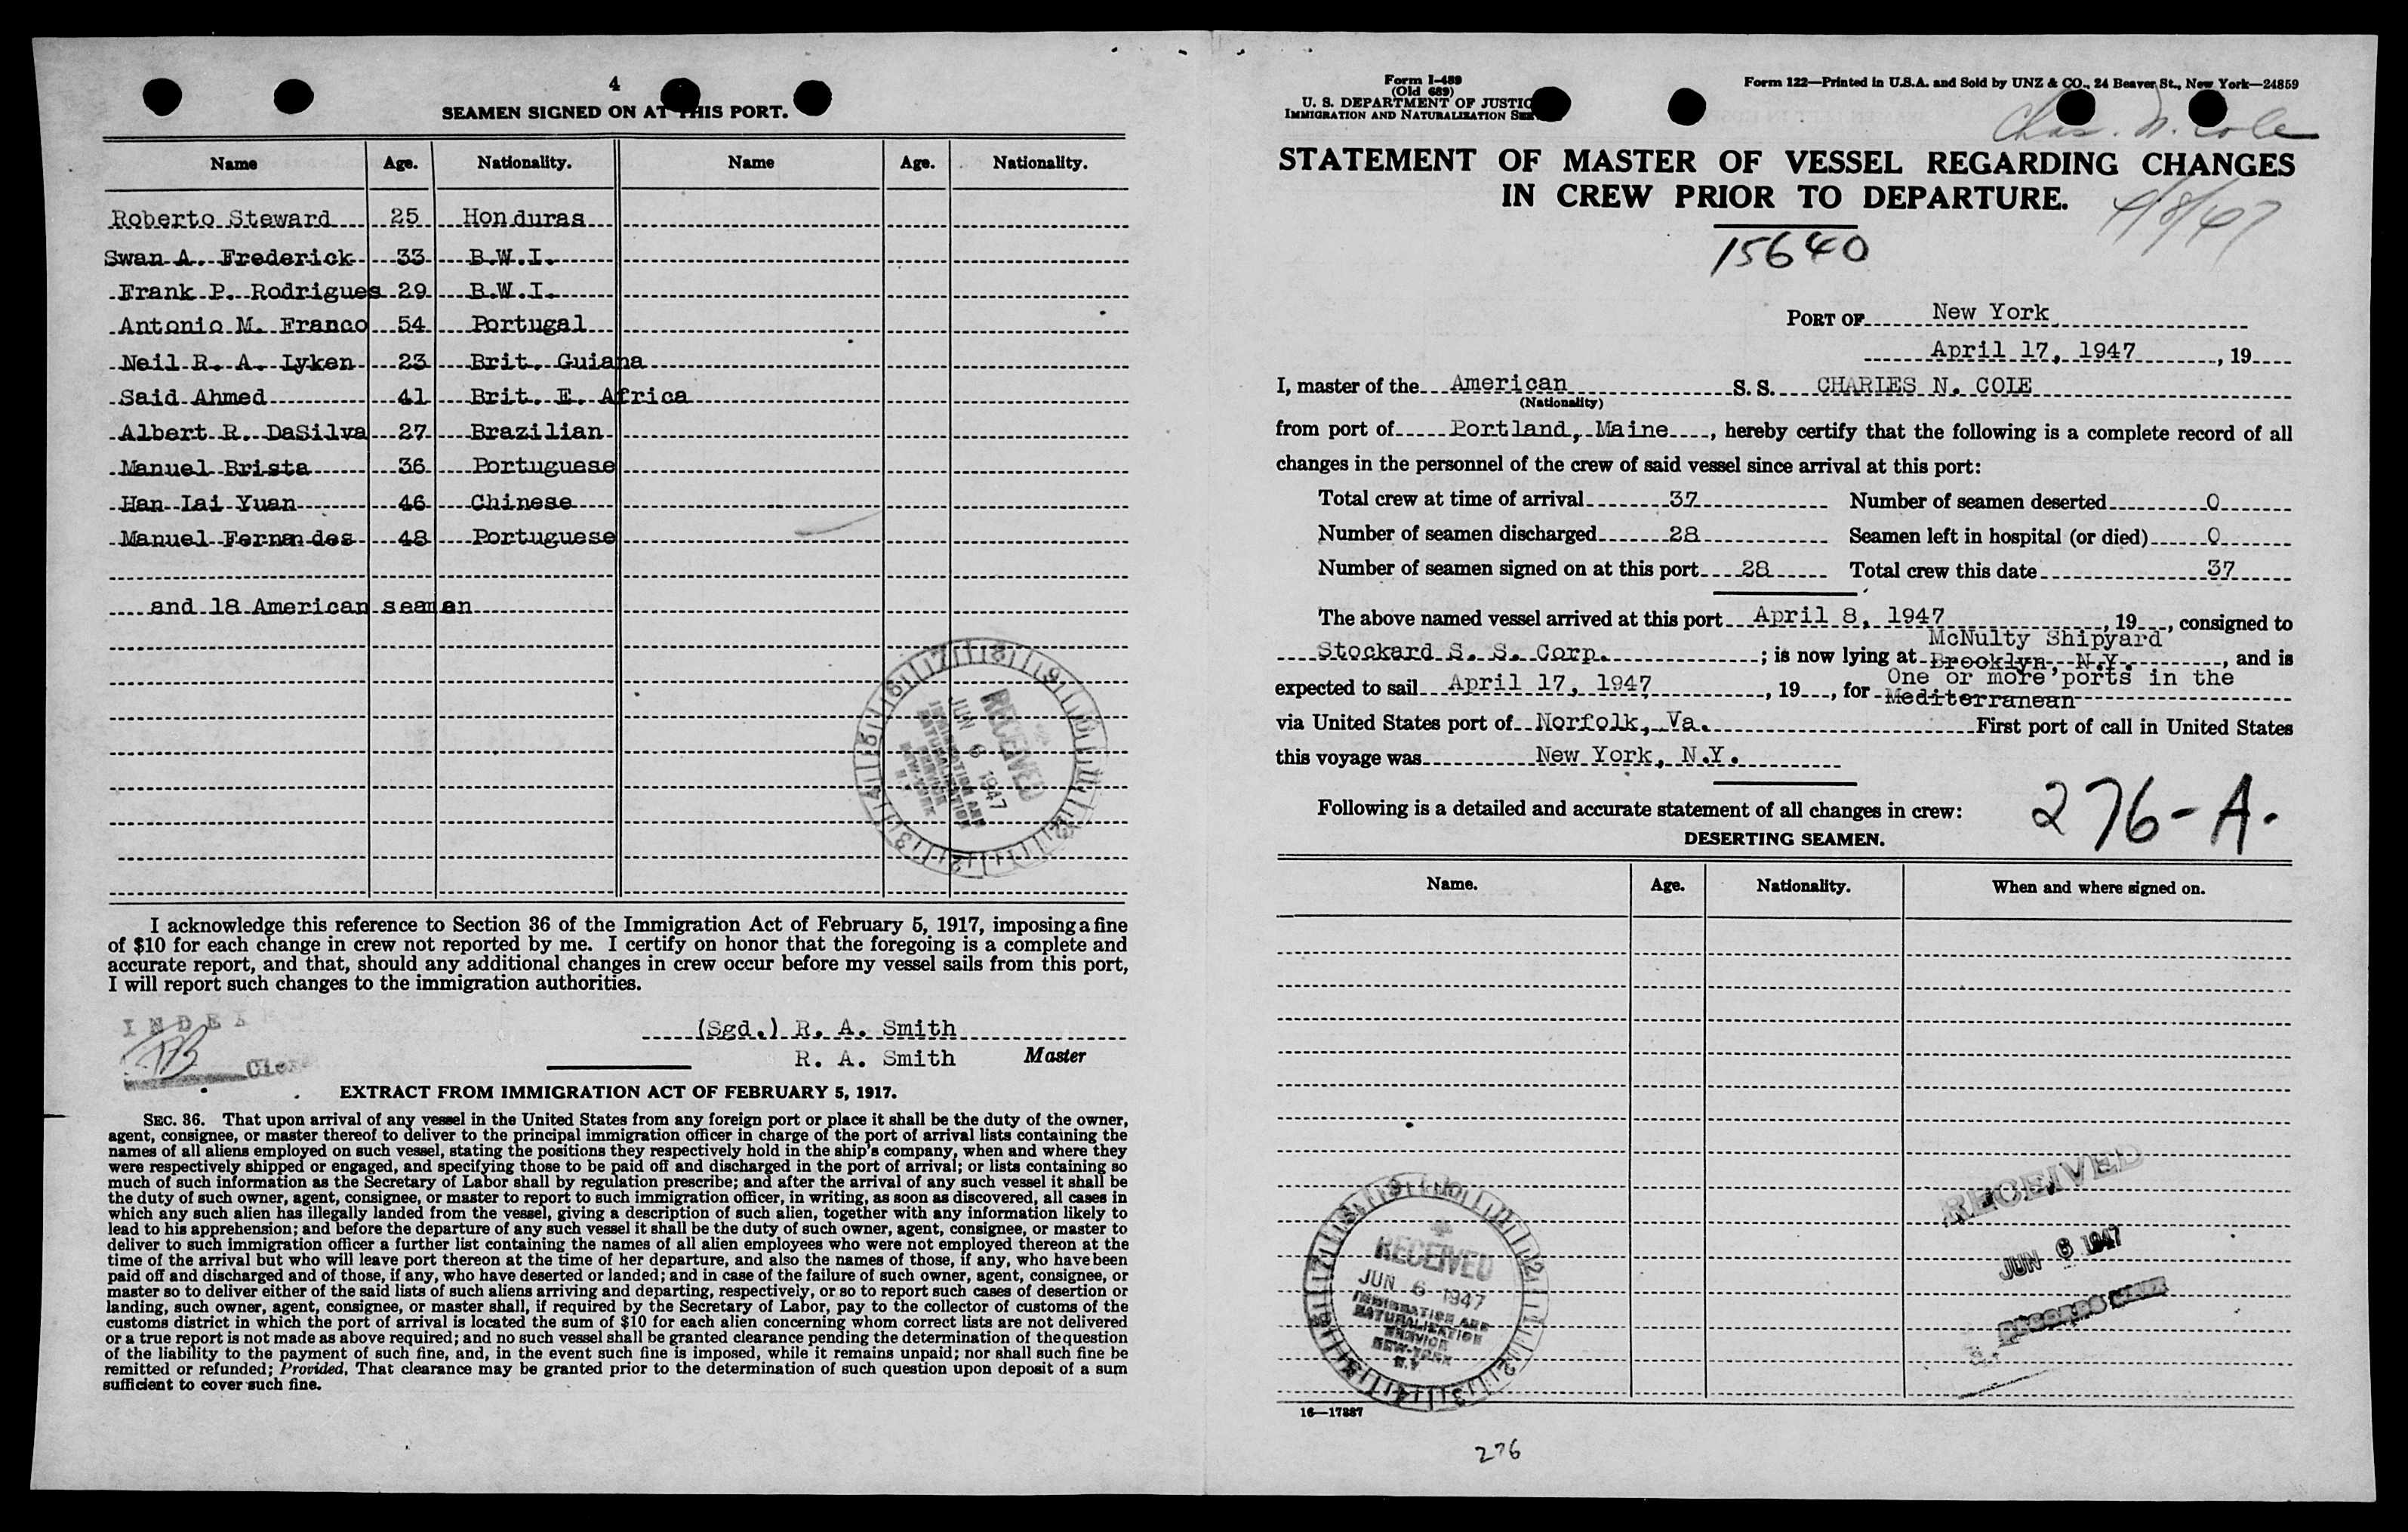 4
SEAMEN SIGNED ON AT THIS PORT.
Name Age. Nationality. Name Age. Nationality.
Roberto Steward 25 Honduras
Swan A. Frederick 33 B.W.I.
Frank P. Rodrigues 29 B.W.I.
Antonio M. Franco 54 Portugal
Neil R. A. Lyken 23 Brit. Guiana
Said Ahmed 41 Brit. E. Africa
Albert R. DaSilva 27 Brazilian
Manuel Brista 36 Portuguese
Han Lai Yuan 46 Chinese
Manuel Fernandes 48 Portuguese
and 18 American seamen
RECEIVED
JUN 6 1947
IMMIGRATION AND
NATURALIZATION
SERVICE
NEW-YORK
N.Y
I acknowledge this reference to Section 36 of the Immigration Act of February 5, 1917, imposing a fine
of $10 for each change in crew not reported by me. I certify on honor that the foregoing is a complete and
accurate report, and that, should any additional changes in crew occur before my vessel sails from this port,
I will report such changes to the immigration authorities.
INDEX
(Sgd.) R. A. Smith
R. A. Smith Master
EXTRACT FROM IMMIGRATION ACT OF FEBRUARY 5, 1917.
SEC. 36. That upon arrival of any vessel in the United States from any foreign port or place it shall be the duty of the owner,
agent, consignee, or master thereof to deliver to the principal immigration officer in charge of the port of arrival lists containing the
names of all aliens employed on such vessel, stating the positions they respectively hold in the ship's company, when and where they
were respectively shipped or engaged, and specifying those to be paid off and discharged in the port of arrival; or lists containing so
much of such information as the Secretary of Labor shall by regulation prescribe; and after the arrival of any such vessel it shall be
the duty of such owner, agent, consignee, or master to report to such immigration officer, in writing, as soon as discovered, all cases in
which any such alien has illegally landed from the vessel, giving a description of such alien, together with any information likely to
lead to his apprehension; and before the departure of any such vessel it shall be the duty of such owner, agent, consignee, or master to
deliver to such immigration officer a further list containing the names of all alien employees who were not employed thereon at the
time of the arrival but who will leave port thereon at the time of her departure, and also the names of those, if any, who have been
paid off and discharged and of those, if any, who have deserted or landed; and in case of the failure of such owner, agent, consignee, or
master so to deliver either of the said lists of such aliens arriving and departing, respectively, or so to report such cases of desertion or
landing, such owner, agent, consignee, or master shall, if required by the Secretary of Labor, pay to the collector of customs of the
customs district in which the port of arrival is located the sum of $10 for each alien concerning whom correct lists are not delivered
or a true report is not made as above required; and no such vessel shall be granted clearance pending the determination of the question
of the liability to the payment of such fine, and, in the event such fine is imposed, while it remains unpaid; nor shall such fine be
remitted or refunded; Provided, That clearance may be granted prior to the determination of such question upon deposit of a sum
sufficient to cover such fine.
Form I-489
(Old 689)
U. S. DEPARTMENT OF JUSTIC
IMMIGRATION AND NATURALIZATION SER
Form 122—Printed in U.S.A. and Sold by UNZ & CO., 24 Beaver St., New York—24859
Chas. N. Cole
STATEMENT OF MASTER OF VESSEL REGARDING CHANGES
IN CREW PRIOR TO DEPARTURE.
4/8/47
15640
PORT OF New York
April 17, 1947, 19
I, master of the American S. S. CHARLES N. COLE
(Nationality)
from port of Portland, Maine, hereby certify that the following is a complete record of all
changes in the personnel of the crew of said vessel since arrival at this port:
Total crew at time of arrival 37 Number of seamen deserted 0
Number of seamen discharged 28 Seamen left in hospital (or died) 0
Number of seamen signed on at this port 28 Total crew this date 37
The above named vessel arrived at this port April 8, 1947, 19, consigned to
McNulty Shipyard
Stockard S. S. Corp. ; is now lying at Brooklyn, N.Y., and is
One or more ports in the
expected to sail April 17, 1947, 19, for Mediterranean
via United States port of Norfolk, Va. First port of call in United States
this voyage was New York, N.Y.
Following is a detailed and accurate statement of all changes in crew:
276-A.
DESERTING SEAMEN.
Name. Age. Nationality. When and where signed on.
RECEIVED
JUN 6 1947
RECEIVED
JUN 6 1947
IMMIGRATION AND
NATURALIZATION
SERVICE
NEW-YORK
N.Y
16—17887
276